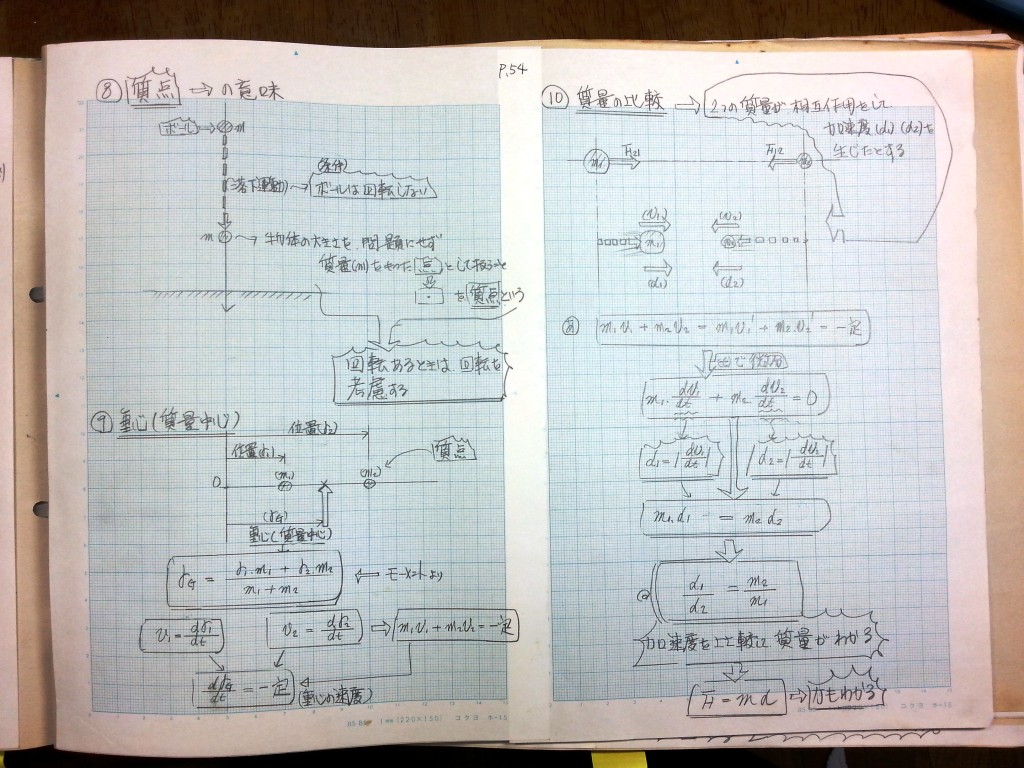 P.54
⑧ 質点 ⇒ の意味
ボール → m
(落下運動) → (条件)
ボールは回転しない
m → 物体の大きさを問題にせず
質量(m)をもった 点 として扱うこと
を 質点 という
回転あるときは回転を
考慮する
⑨ 重心(質量中心)
位置(r₂)
位置(r₁)
質点
0 (m₁) (m₂)
(r_G)
重心(質量中心)
r_G = (r₁·m₁ + r₂·m₂)/(m₁ + m₂) ⇐ モーメントより
v₁ = dr₁/dt v₂ = dr₂/dt ⇒ m₁v₁ + m₂v₂ = 一定
dr_G/dt = 一定 (重心の速度)
HS-B 1mm (220×150) コクヨ ホ-15
⑩ 質量の比較 → 2つの質量が相互作用をして
加速度(α₁)(α₂)を
生じたとする
m₁ F₂₁ F₁₂ m₂
(v₁) (v₂)
m₁ m₂
(α₁) (α₂)
m₁v₁ + m₂v₂ = m₁v₁' + m₂v₂' = 一定
tで微分
m₁·dv₁/dt + m₂ dv₂/dt = 0
α₁ = |dv₁/dt| α₂ = |dv₂/dt|
m₁·α₁ = m₂ α₂
α₁/α₂ = m₂/m₁
加速度を比較して質量がわかる
F = mα → 力もわかる
HS-B 1mm (220×150) コクヨ ホ-15